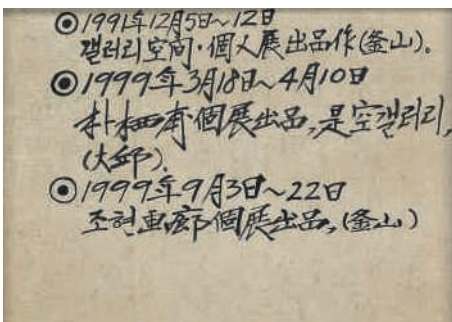 ◉1991年12月5日~12日
갤러리空间·個人展出品作(釜山).
◉1999年3月18日~4月10日
朴栖甫個展出品,是空갤러리,
(大邱).
◉1999年9月3日~22日
조현画廊個展出品,(釜山)